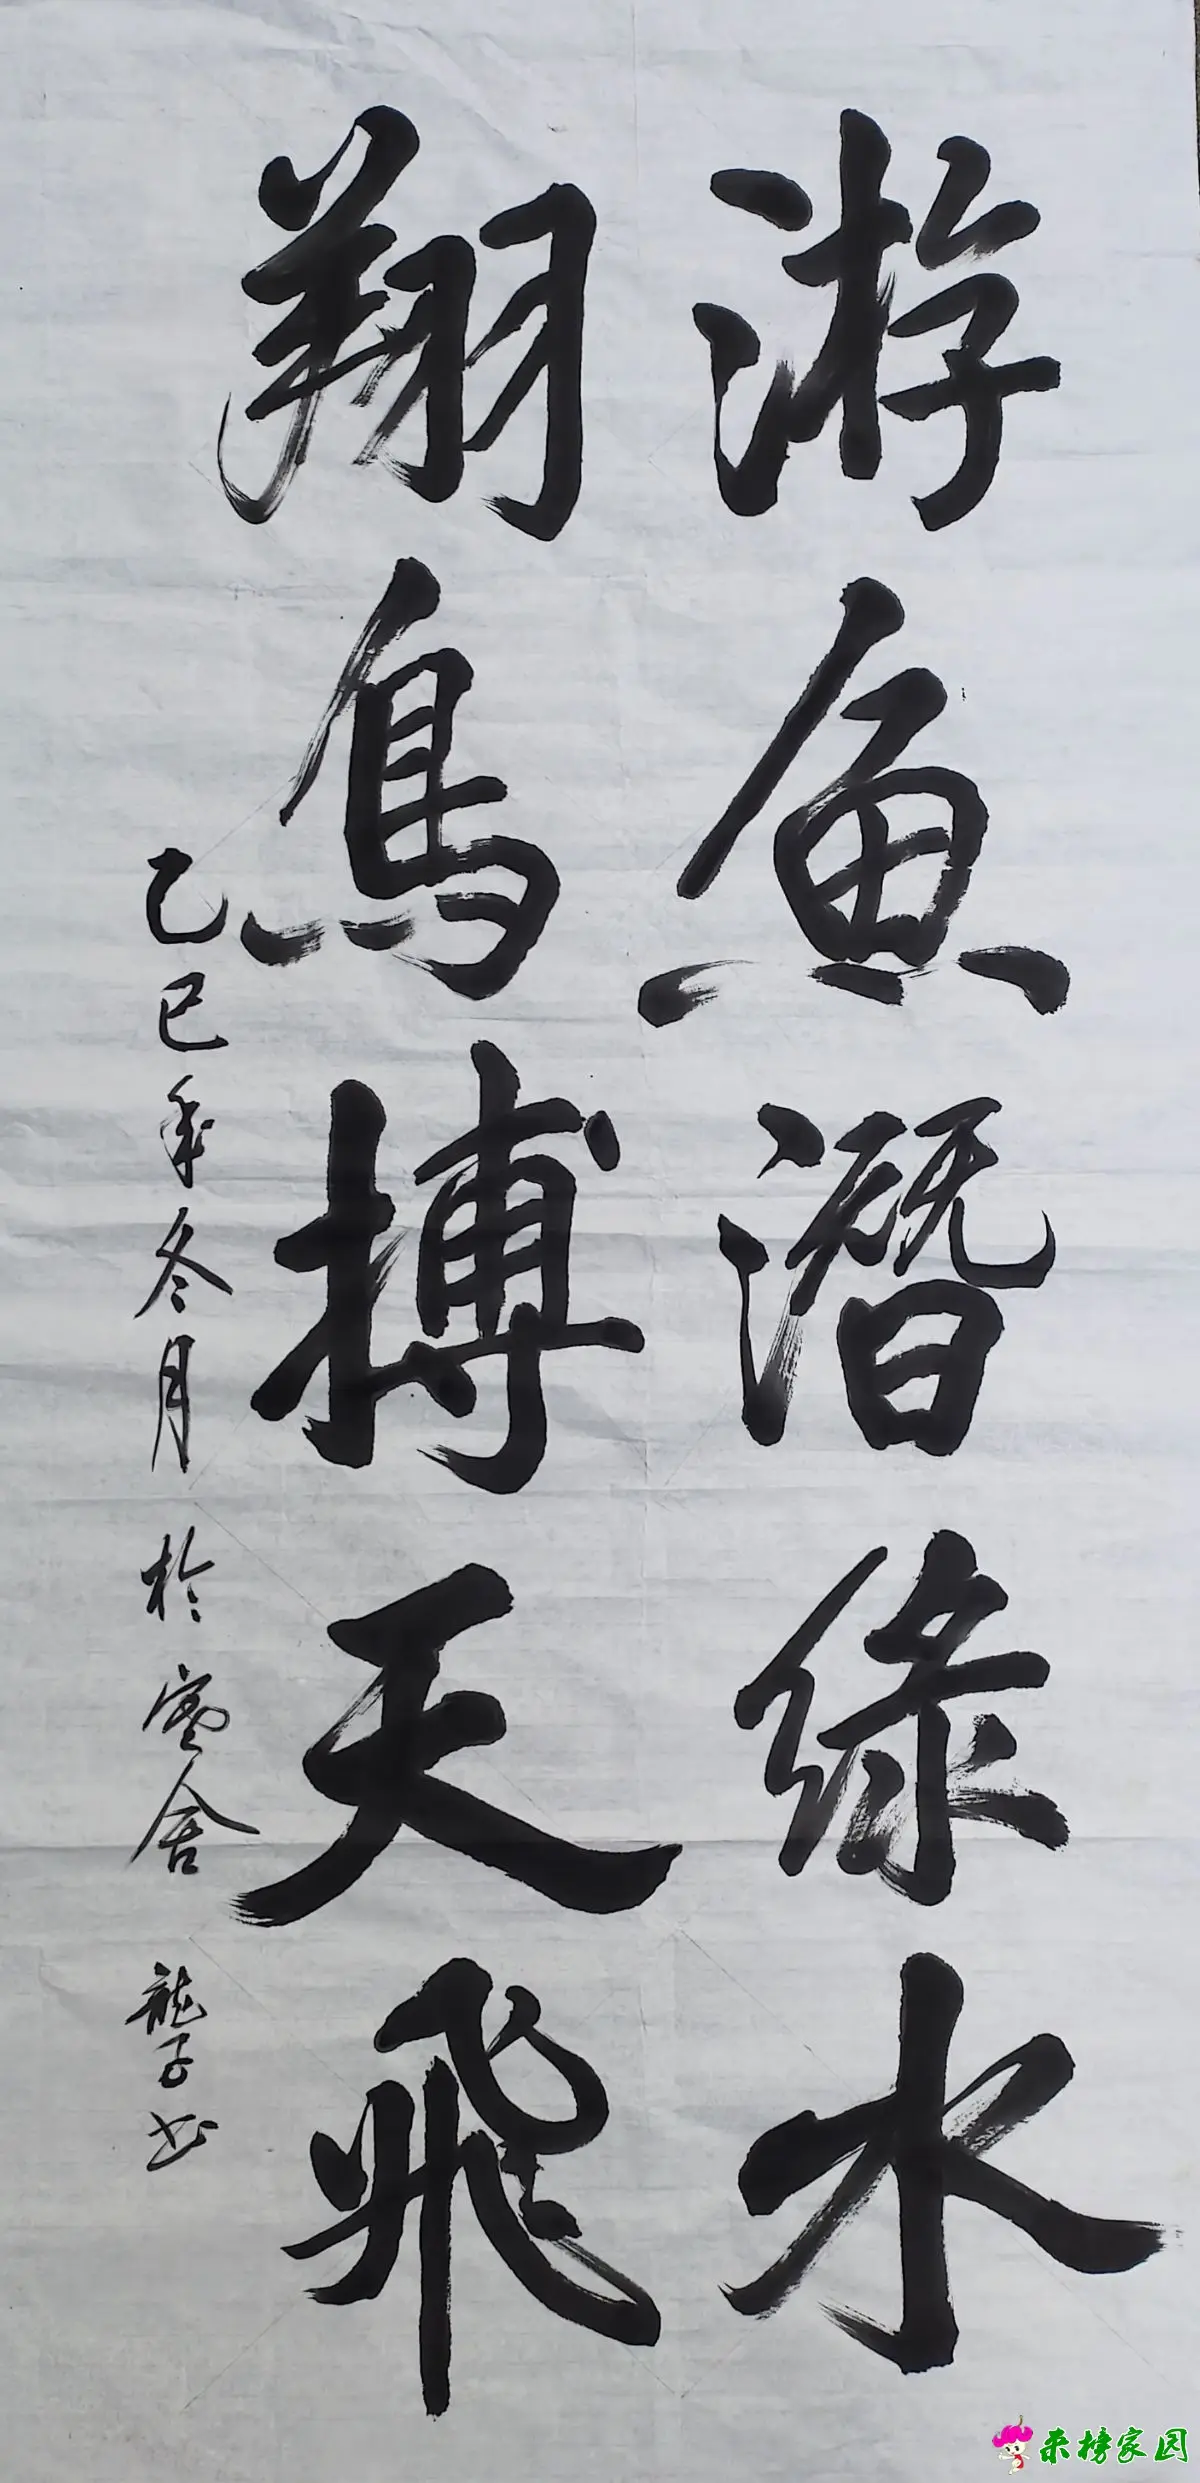 游魚潛綠水
翔鳥搏天飛
乙巳年冬月於寒舍龍子书
来榜家园